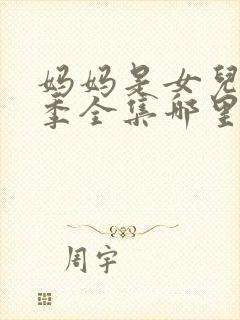 妈妈是女兒
季全集哪里
周宇